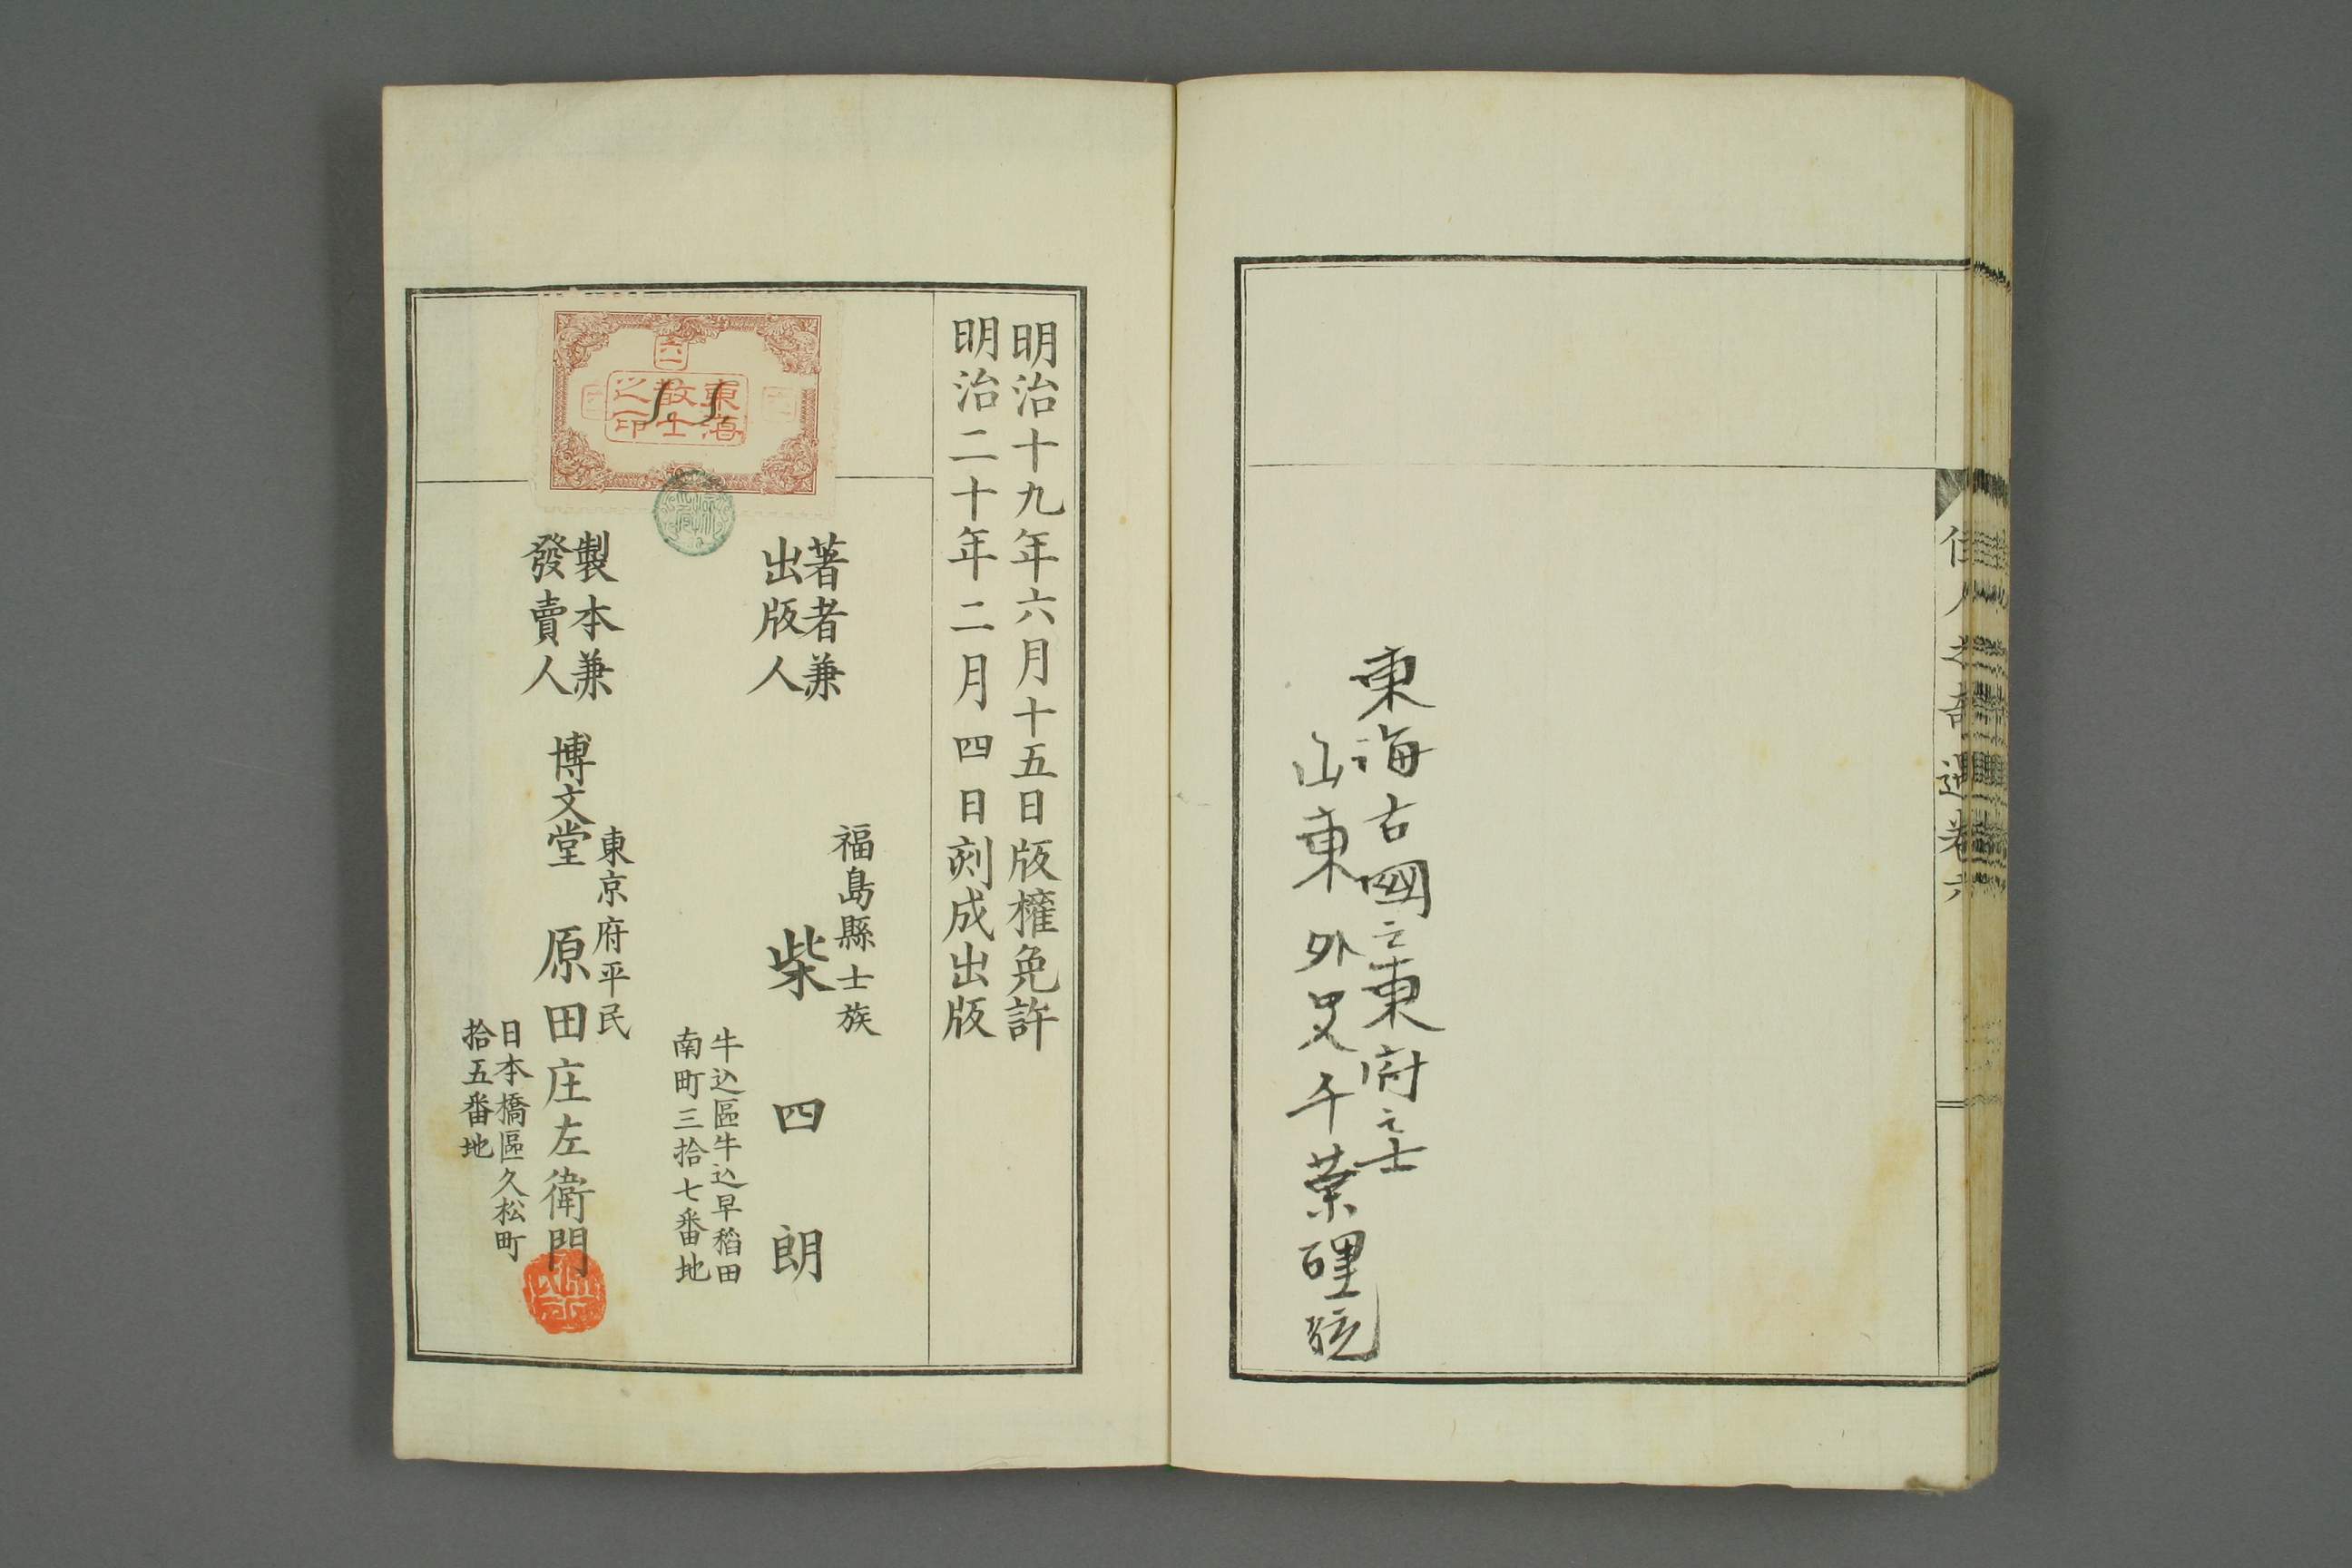 佳人之奇遇卷六
東海古國之東府之士
山東外史千葉
明治十九年六月十五日版權免許
明治二十年二月四日刻成出版
東海
散士
之印
著者兼
出版人
福島縣士族
柴四朗
牛込區牛込早稻田
南町三拾七番地
製本兼
發賣人
東京府平民
博文堂 原田庄左衛門
日本橋區久松町
拾五番地